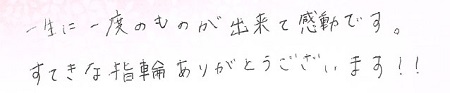 一生に一度のものが出来て感動です。
すてきな指輪ありがとうございます!!